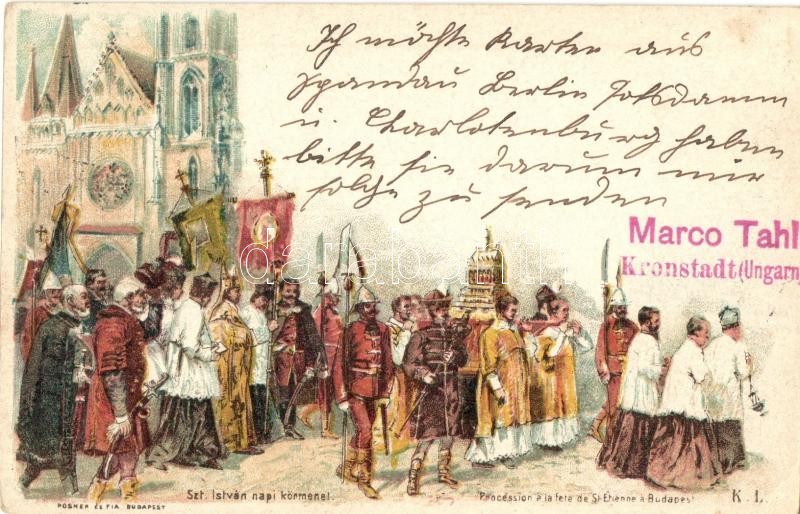 Ich möchte Karten aus
Spandau Berlin Potsdamm
u. Charlotenburg haben
bitte sie darum mir
solche zu senden
Marco Tahl
Kronstadt (Ungarn)
Szt. István napi körmenet.
Procession à la fete de St. Etienne à Budapest
K. L.
POSNER ÉS FIA BUDAPEST